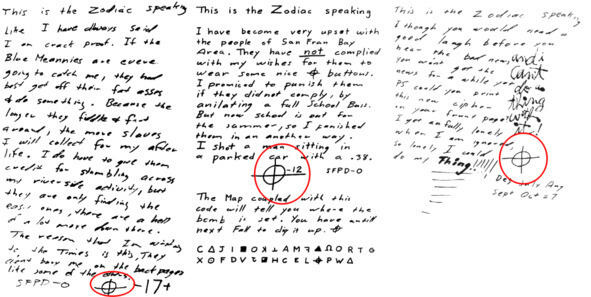 This is the Zodiac speaking
Like I have always said
I am crack proof. If the
Blue Meannies are evere
going to catch me, they had
best get off their fat asses
& do something. Because the
longer they fiddle & fart
around, the more slaves
I will collect for my after
life. I do have to give them
credit for stumbling across
my riverside activity, but
they are only finding the
easy ones, there are a hell
of a lot more down there.
The reason that Im writing
to the Times is this, They
dont bury me on the back pages
like some of the others.
SFPD-0 -17+
This is the Zodiac speaking
I have become very upset with
the people of San Fran Bay
Area. They have not complied
with my wishes for them to
wear some nice ⌖ buttons.
I promiced to punish them
if they did not comply, by
anilating a full School Buss.
But now school is out for
the summer, so I punished
them in an another way.
I shot a man sitting in
a parked car with a .38.
-12 SFPD-0
The Map coupled with this
code will tell you where the
bomb is set. You have untill
next Fall to dig it up. ⌖
C Δ J I ■ O ꓘ ⊥ A M ꟻ ▲ Ω O R T G
X O F D V ■ H C E L ⌖ P W Δ
This is the Zodiac speaking
I though you would need a
good laugh before you
hear the bad news,
you won't get the
news for a while yet.
PS could you print
this new cipher
in your frunt page?
I get awfully lonely
when I am ignored,
so lonely I could
do my Thing!!!!!!
and i
can't
do a
thing
with
it!
Des July Aug
Sept Oct = 7